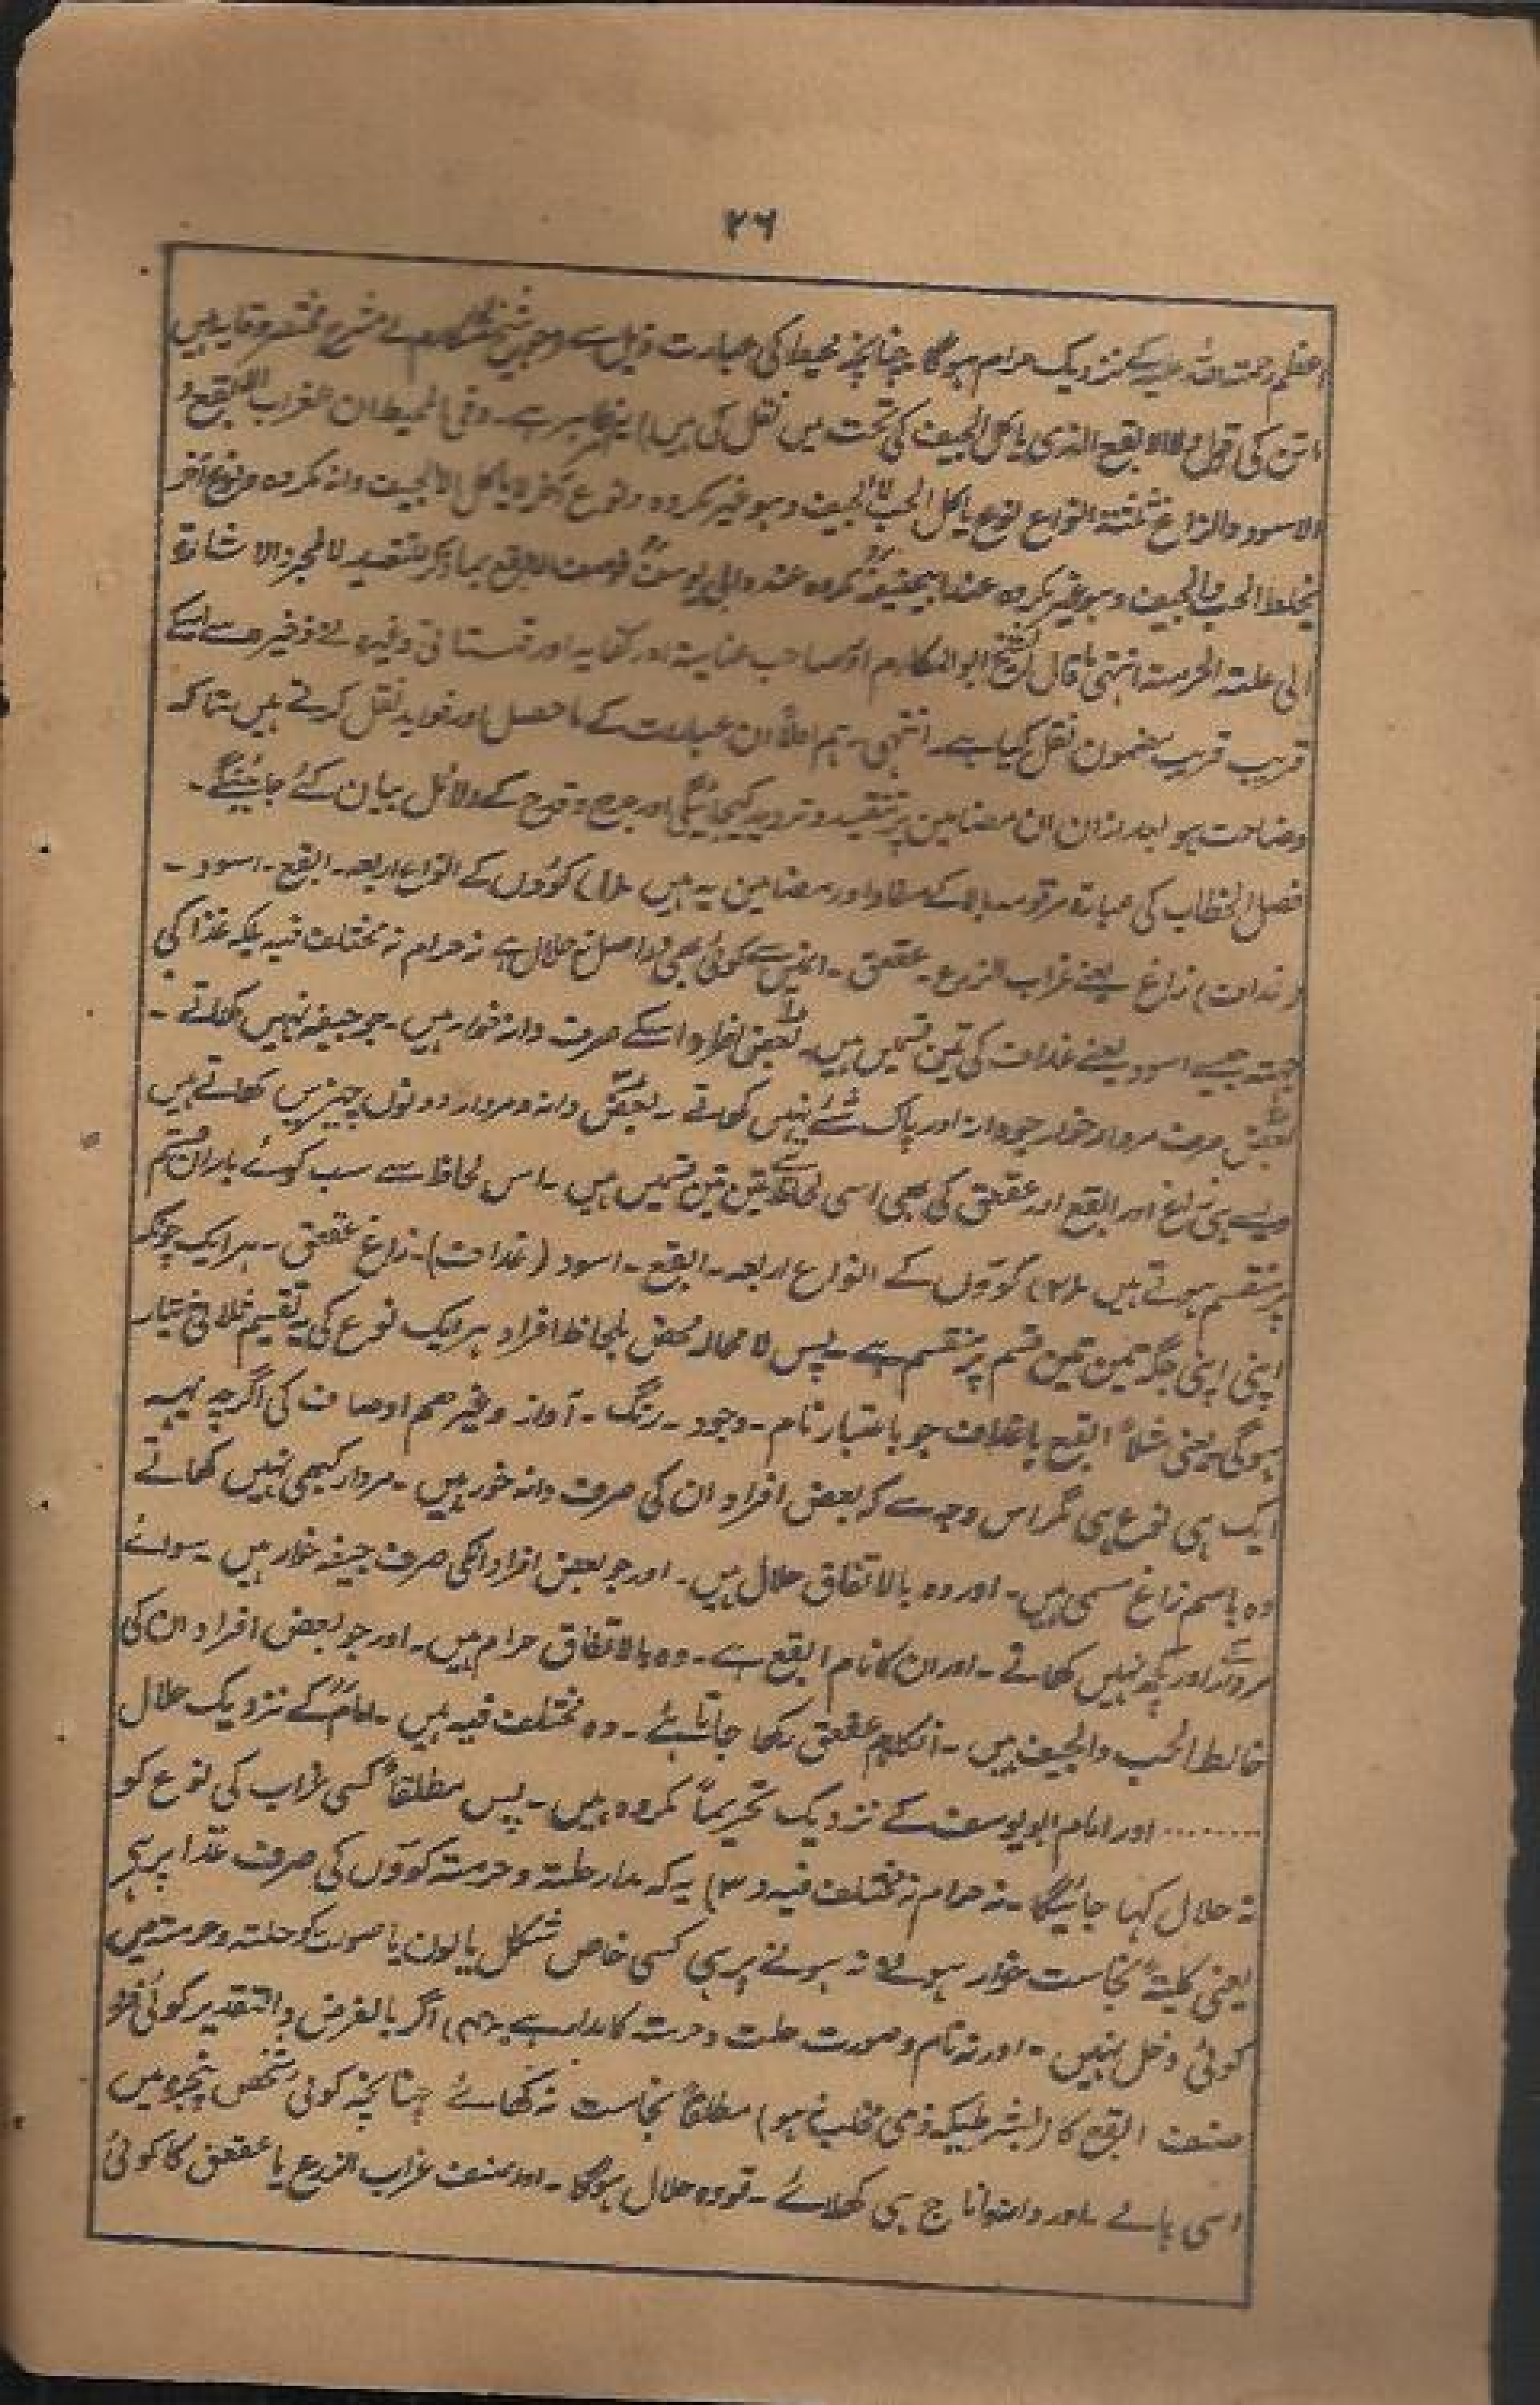 ۲۶
اعظم رحمتہ اللہ علیہ کے نزدیک حرام ہوگا چنانچہ محیط کی عبارت ذیل سے (جو شیخ ابو المکارم نے شرح مختصر وقایہ میں
ماتن کی قول ولا الابقع الذی یاکل الجیف کی تحت میں نقل کی ہیں) یہ ظاہر ہے۔ وفی المحیط ان الغراب الابقع و
الاسود والزاغ ثلثتہ انواع نوع یاکل الحب لا الجیف وہو غیر مکروہ ونوع آخر لا یاکل الا الجیف وانہ مکروہ ونوع آخر
یخلط الحب والجیف وہو غیر مکروہ عند ابیحنیفہؒ مکروہ عند ابی یوسفؒ فوصف الابقع بما ذکر للتقیید لا لمجرد الاشارۃ
الی علتہ الحرمتہ انتہیٰ ما قال الشیخ ابو المکارم اور صاحب عنایہ اور کفایہ اور قہستانی وغیرہ نے ذخیرہ سے اسکے
قریب قریب مضمون نقل کیا ہے۔ انتہی۔ ہم اولاً ان عبارات کے ماحصل اور فواید نقل کرتے ہیں تاکہ
وضاحت ہو بعد ازان ان مضامین پر تنقید و تردید کیجائیگی اور جرح و قدح کے دلائل بیان کئے جائینگے۔
فصل الخطاب کی عبارۃ مرقومہ بالا کے مفاد اور مضامین یہ ہیں (۱) کوّوں کے انواع اربعہ۔ ابقع۔ اسود۔
(غداف) زاغ یعنے غراب الزرع۔ عقعق۔ انمیں سے کوئی بھی نہ اصل حلال ہے نہ حرام نہ مختلف فیہ بلکہ غذا کی
جہتہ جیسے اسود یعنے غداف کی تین قسمیں ہیں۔ بعض افراد اسکے صرف دانہ خوار ہیں۔ جو جیفہ نہیں کھاتے۔
بعض صرف مردار خوار جو دانہ اور پاک شئے نہیں کھاتے۔ بعض دانہ و مردار دونوں چیزیں کھاتے ہیں
ویسے ہی زاغ اور ابقع اور عقعق کی بھی اسی لحاظ سے تین تین قسمیں ہیں۔ اس لحاظ سے سب کوّے باراں قسم
پر منقسم ہوتے ہیں (۲) کوّوں کے انواع اربعہ۔ ابقع۔ اسود (غداف)۔ زاغ عقعق۔ ہر ایک چونکہ
اپنی اپنی جگہ تین تین قسم پر منقسم ہے پس لا محالہ محض بلحاظ افراد ہر ایک نوع کی یہ تقسیم ثلاثی تیار
ہوگی یعنی مثلاً ابقع یا غداف جو باعتبار نام۔ وجود۔ رنگ۔ آواز وغیر ہم اوصاف کی اگرچہ یہہ
ایک ہی نوع ہی مگر اس وجہ سے کہ بعض افراد ان کی صرف دانہ خور ہیں۔ مردار کبھی نہیں کھاتے
وہ باسم زاغ مسمی ہیں۔ اور وہ بالاتفاق حلال ہیں۔ اور جو بعض افراد انکی صرف جیفہ خوار ہیں۔ سوائے
مردار کے اور کچھ نہیں کھاتے۔ اور ان کا نام ابقع ہے۔ وہ بالاتفاق حرام ہیں۔ اور جو بعض افراد ان کی
خالط الحب والجیف ہیں۔ انکا نام عقعق رکھا جاتا ہے۔ وہ مختلف فیہ ہیں۔ امامؒ کے نزدیک حلال
......... اور امام ابویوسف کے نزدیک تحریماً مکروہ ہیں۔ پس مطلقاً کسی غراب کی نوع کو
نہ حلال کہا جائیگا۔ نہ حرام نہ مختلف فیہ (۳) یہ کہ مدار حلتہ و حرمتہ کوّوں کی صرف غذا پر ہی
یعنی کلیتہً نجاست خوار ہونے نہ ہونے پر ہی کسی خاص شکل یا لون یا صورت کو حلتہ و حرمتہ میں
کوئی دخل نہیں۔ اور نہ نام و صورت حلت و حرمتہ کا مدار ہے (۴) اگر بالفرض والتقدیر کوئی فرد
صنف ابقع کا (بشرطیکہ ذی مخلب نہ ہو) مطلقاً نجاست نہ کھائے چنانچہ کوئی شخص پنجرہ میں
اسی پالے۔ اور دانہ اناج ہی کھلائے۔ تو وہ حلال ہوگا۔ اور صنف غراب الزرع یا عقعق کا کوئی